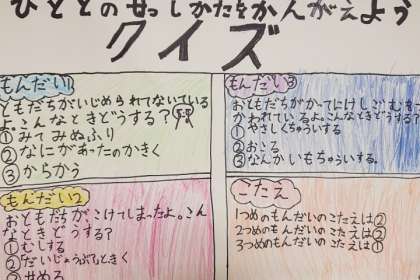 ひととのせっしかたをかんがえよう
クイズ
もんだい1
ともだちがいじめられてないている
よ。こんなときどうする?
①みてみぬふり
②なにがあったのかきく
③からかう
もんだい2
おともだちが、こけてしまったよ。こん
なときどうする?
①むしする
②だいじょうぶ?ときく
③せめる
もんだい3
おともだちががってにけしごむをつ
かわれているよ。こんなときどうする?
①やさしくちゅういする
②おこる
③なんかいもちゅういする。
こたえ
1つめのもんだいのこたえは②
2つめのもんだいのこたえは②
3つめのもんだいのこたえは①